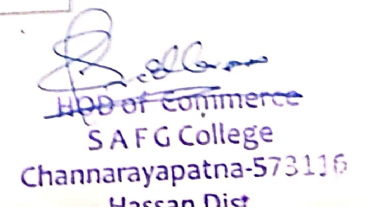 HOD of Commerce
S A F G College
Channarayapatna-573116
Hassan Dist